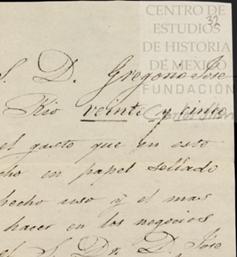 CENTRO DE
ESTUDIOS
32
DE HISTORIA
DE MÉXICO
S. D. Gregorio José
FUNDACIÓN
Rio veinte y cinco
el gusto que en esto
en papel sellado
hecho uso y el mas
hacer en los negocios
el S. Dn. D. José